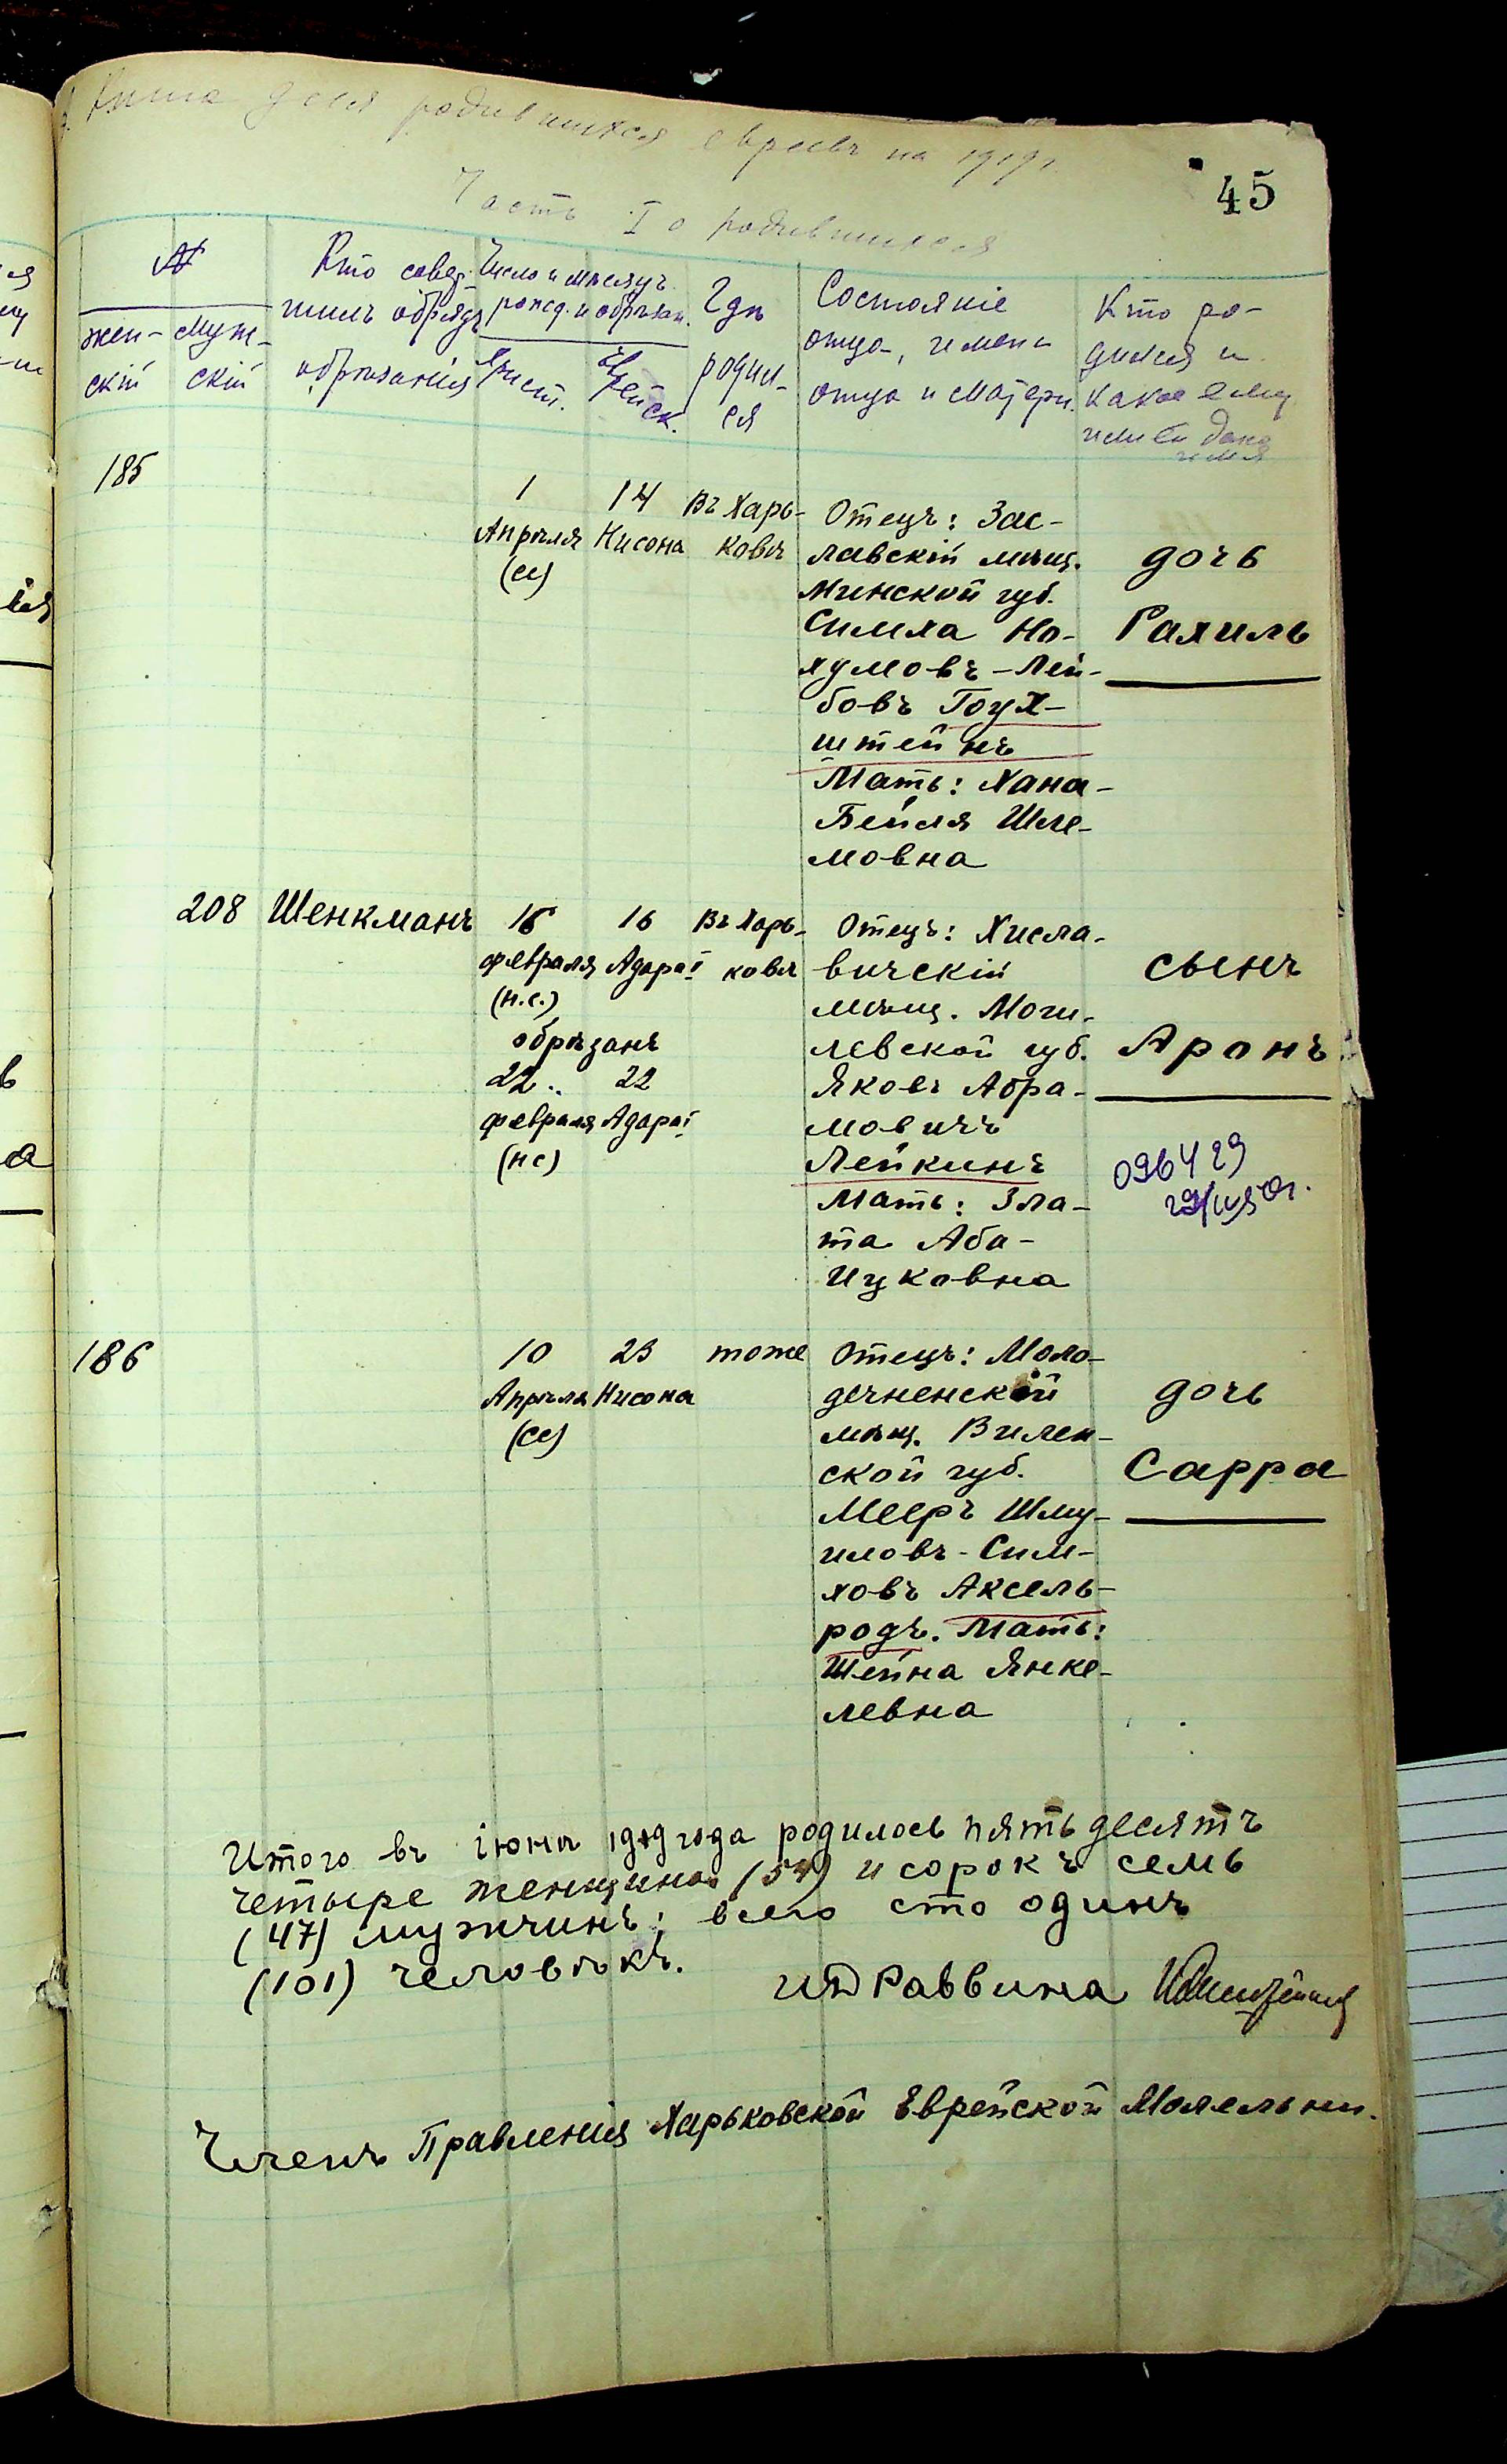 Книга для родившихся евреевъ на 1919 г.
45
Часть I о родившихся
№
жен-
скій
муж-
скій
Кто совер-
шилъ обрядъ
обрѣзанія
Число и мѣсяцъ
рожд. и обрѣзан.
Христ.
Еврейск.
Гдѣ
родил-
ся
Состояніе
отца, имена
отца и матери.
Кто ро-
дился и
какое ему
или ей дано
имя
185
1
Апрѣля
(сс)
14
Нисона
Въ Харь-
ковѣ
Отецъ: Зас-
лавскій мѣщ.
Минской губ.
Симха Но-
хумовъ-Лей-
бовъ Гоух-
штейнъ
Мать: Хана-
Бейля Шле-
мовна
дочь
Рахиль
208
Шенкманъ
16
февраля
(н.с.)
обрѣзанъ
22
февраля
(нс)
16
Адара I
22
Адара I
Въ Харь-
ковѣ
Отецъ: Хисла-
вичскій
мѣщ. Моги-
левской губ.
Яковъ Абра-
мовичъ
Лейкинъ
Мать: Зла-
та Аба-
Ицковна
сынъ
Аронъ
096429
29/IV 50г.
186
10
Апрѣля
(сс)
23
Нисона
тоже
Отецъ: Моло-
дечненскій
мѣщ. Вилен-
ской губ.
Мееръ Шму-
иловъ-Сим-
ховъ Аксель-
родъ. Мать:
Шейна Янке-
левна
дочь
Сарра
Итого въ іюнѣ 1919 года родилось пятьдесятъ
четыре женщины (54) и сорокъ семь
(47) мужчинъ; всего сто одинъ
(101) человѣкъ.
ИД Раввина
Членъ Правленія Харьковской Еврейской Молельни.